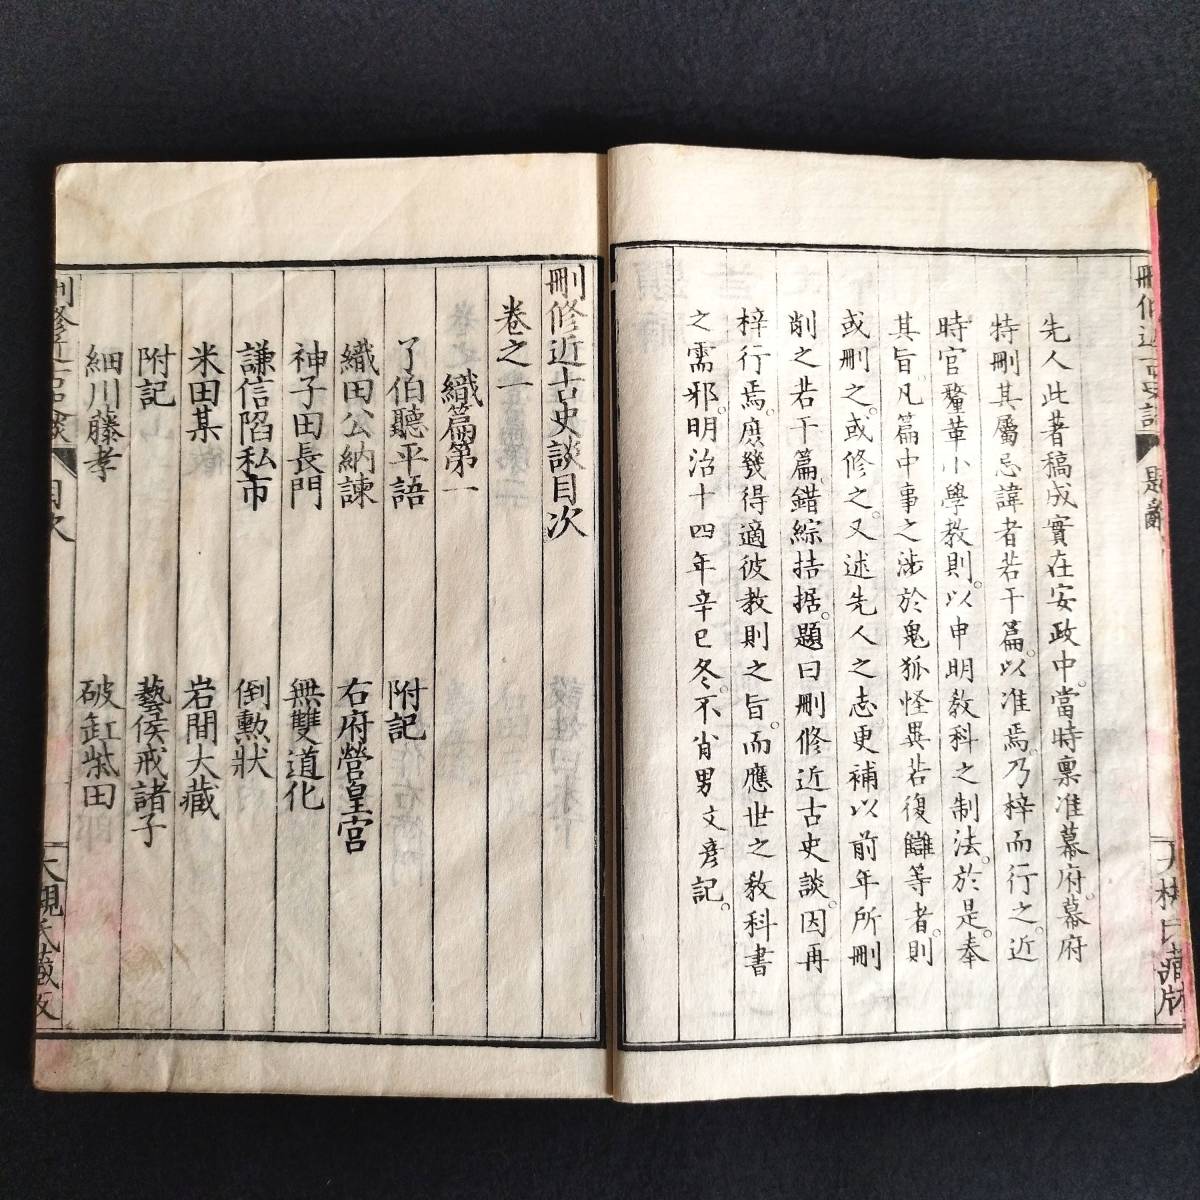 先人此著稿成實在安政中。當時稟准幕府。幕府
特刪其屬忌諱者若干篇。以准焉。乃梓而行之。近
時官釐革小學教則。以申明教科之制法。於是。奉
其旨。凡篇中事之涉於鬼狐怪異。若復讎等者。則
或刪之。或修之。又述先人之志。更補以前年所刪
削之若干篇。錯綜拮据。題曰刪修近古史談。因再
梓行焉。庶幾得適彼教則之旨。而應世之教科書
之需邪。明治十四年辛巳冬。不肖男文彦記。
刪修近古史談目次
卷之一
織篇第一
了伯聽平語
附記
織田公納諫
右府營皇宮
神子田長門
無雙道化
謙信陷私市
倒勲狀
米田某
岩間大藏
附記
藝侯戒諸子
細川藤孝
破缸柴田
目次
大槻氏藏版